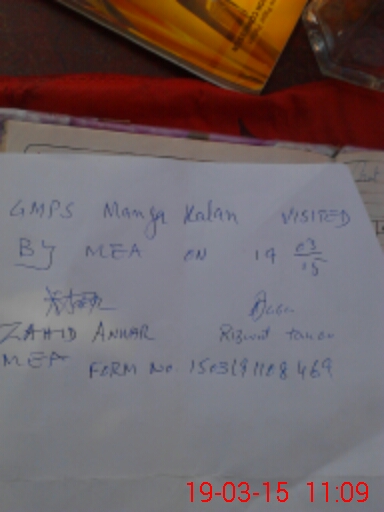 GMPS Manga Kalan VISITED
By MEA ON 19 03/15
ZAHID ANWAR Rizwat
MEA FORM NO. 1503191108469
19-03-15 11:09